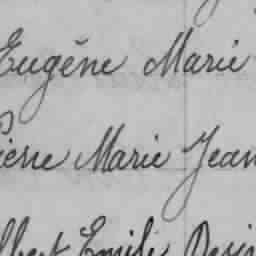 Eugène Marie
Pierre Marie Jean
Albert Emile Desir